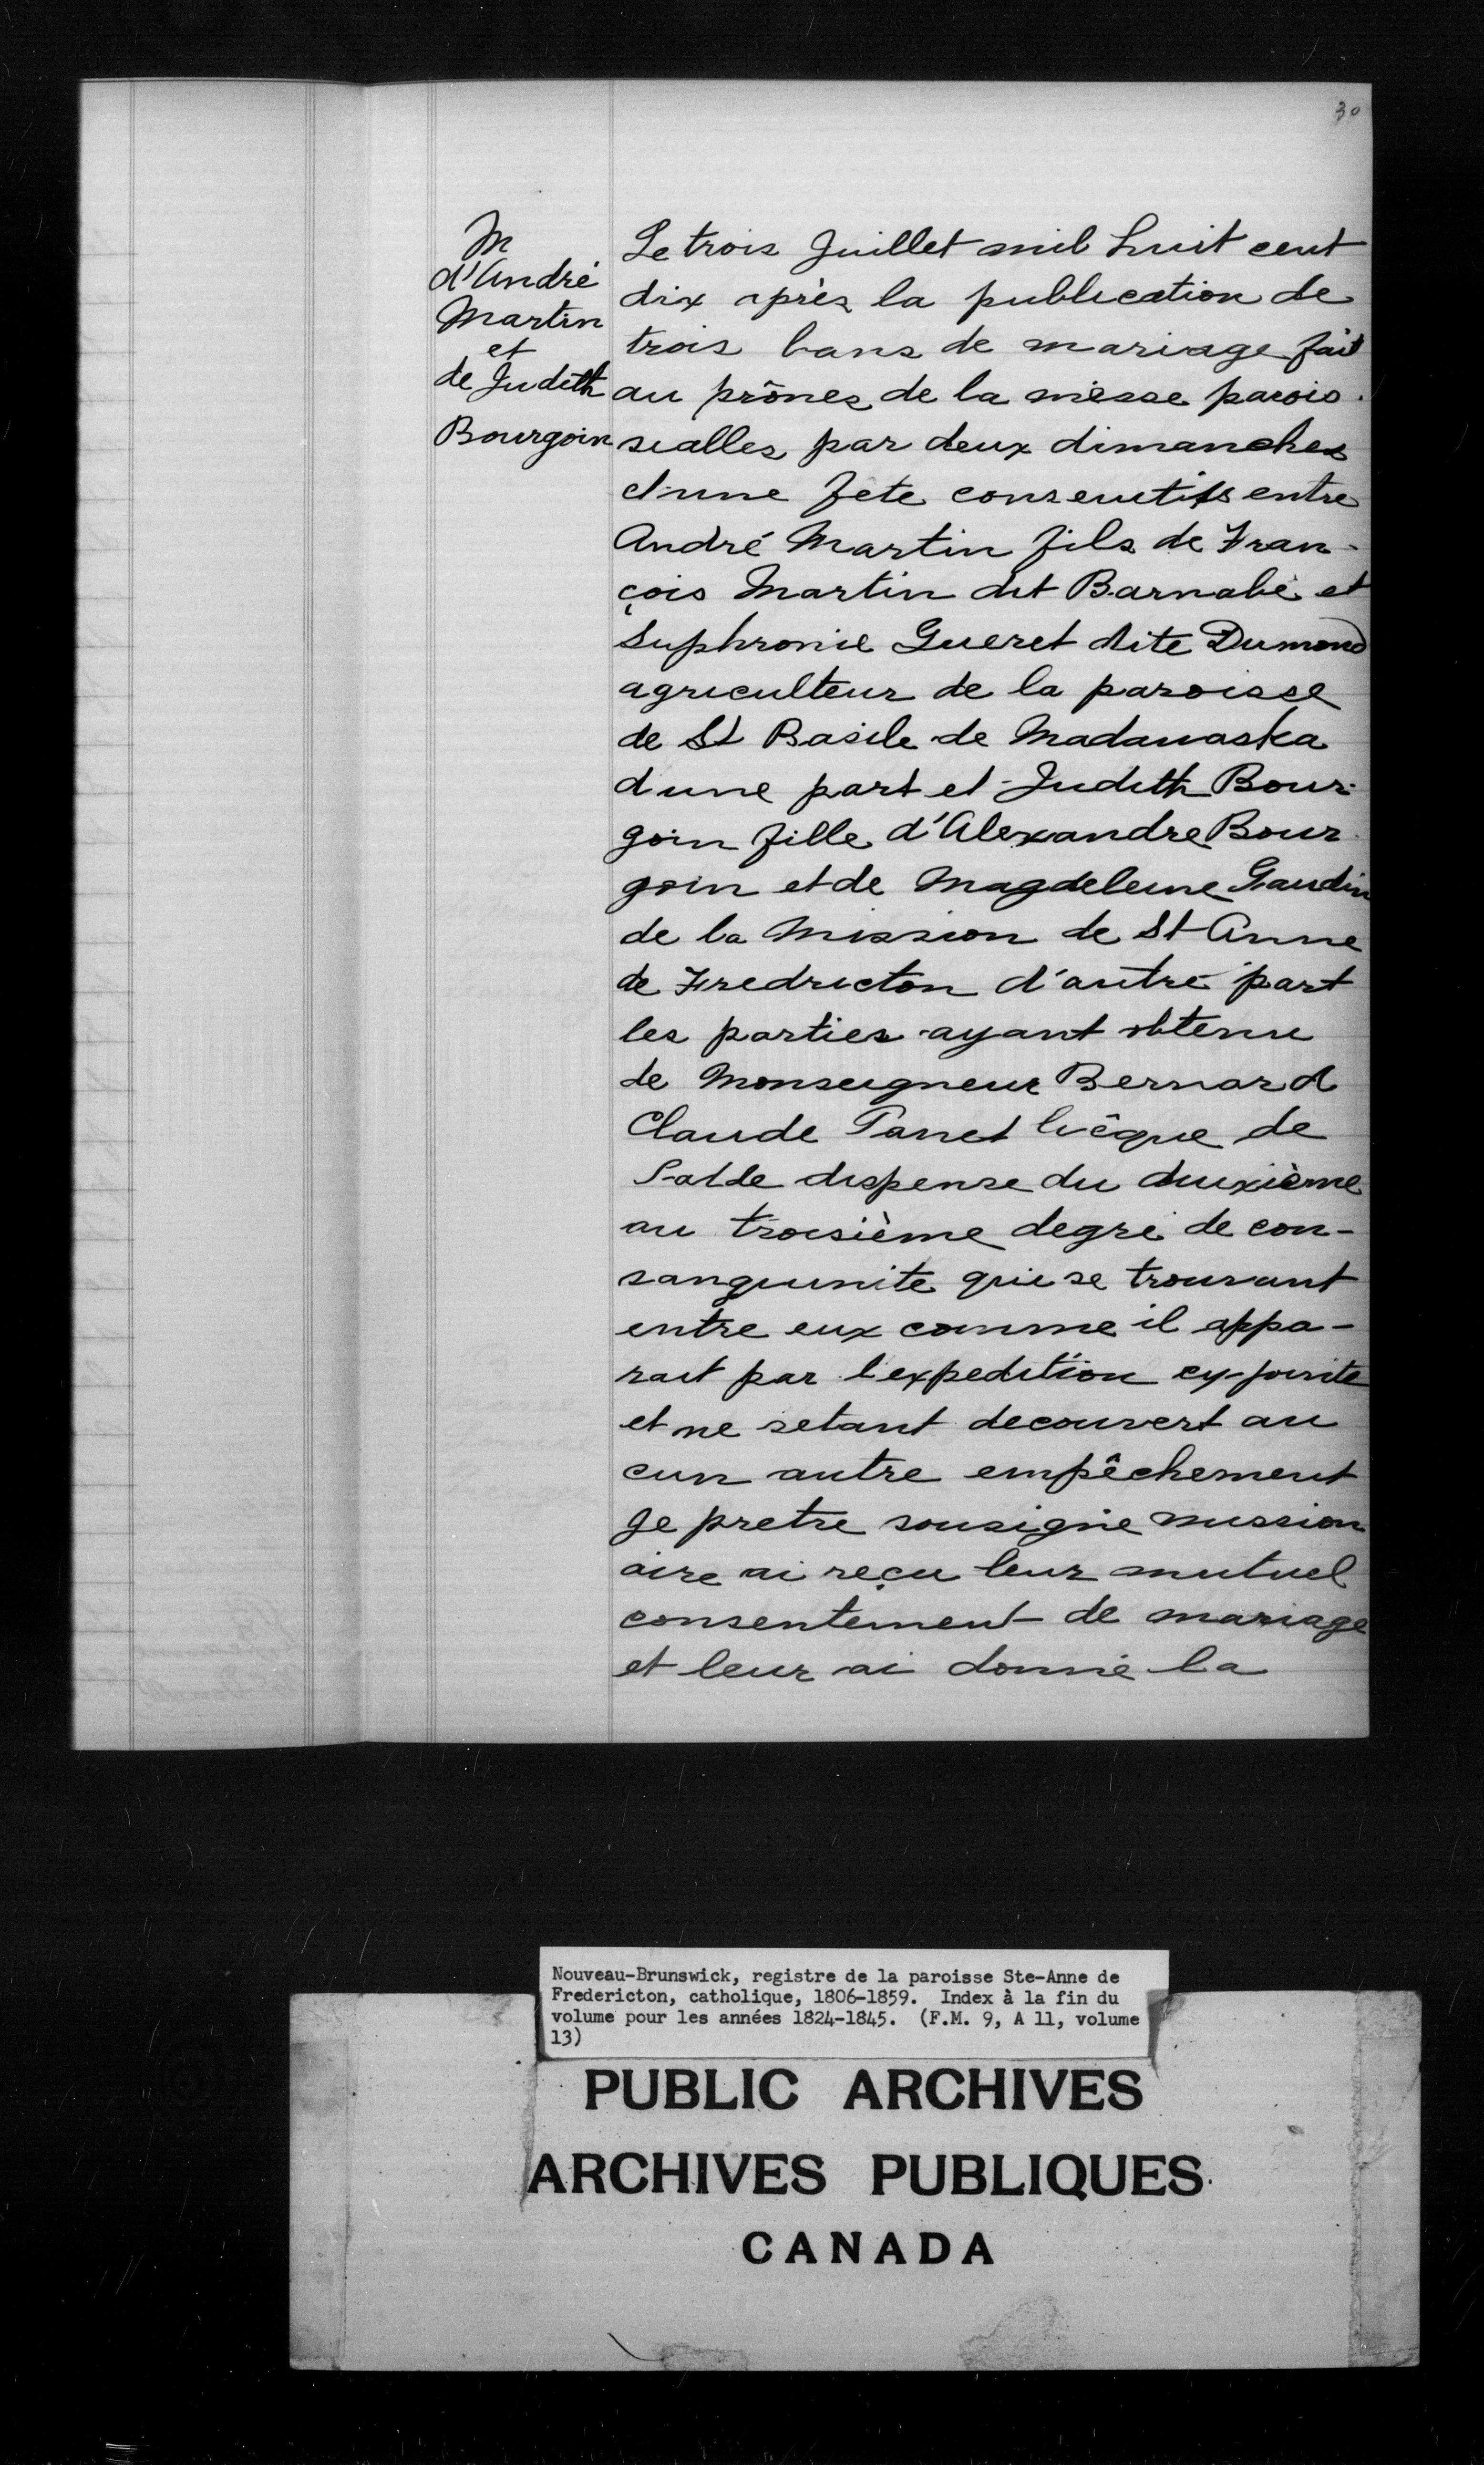 30
M
d'André
Martin
et
de Judith
Bourgoin
Le trois Juillet mil huit cent
dix après la publication de
trois bans de mariage fait
au prônes de la messe parois-
sialles par deux dimanches
d'une fete consecutifs entre
André Martin fils de Fran-
çois Martin dit Barnabé et
Euphronie Gueret dite Dumond
agriculteur de la paroisse
de St Basile de Madawaska
d'une part et Judith Bour-
goin fille d'Alexandre Bour
goin et de Magdeleine Gaudin
de la Mission de St Anne
de Fredricton d'autre part
les parties ayant obtenu
de Monseigneur Bernard
Claude Panet Evêque de
Salde dispense du deuxième
au troisième degré de con-
sanguinite qui se trouvant
entre eux comme il appa-
rait par l'expedition cy-jointe
et ne setant decouvert au
cun autre empêchement
Je pretre sousigné mission
aire ai reçu leur mutuel
consentement de mariage
et leur ai donné la
Nouveau-Brunswick, registre de la paroisse Ste-Anne de
Fredericton, catholique, 1806-1859. Index à la fin du
volume pour les années 1824-1845. (F.M. 9, A 11, volume
13)
PUBLIC ARCHIVES
ARCHIVES PUBLIQUES
CANADA